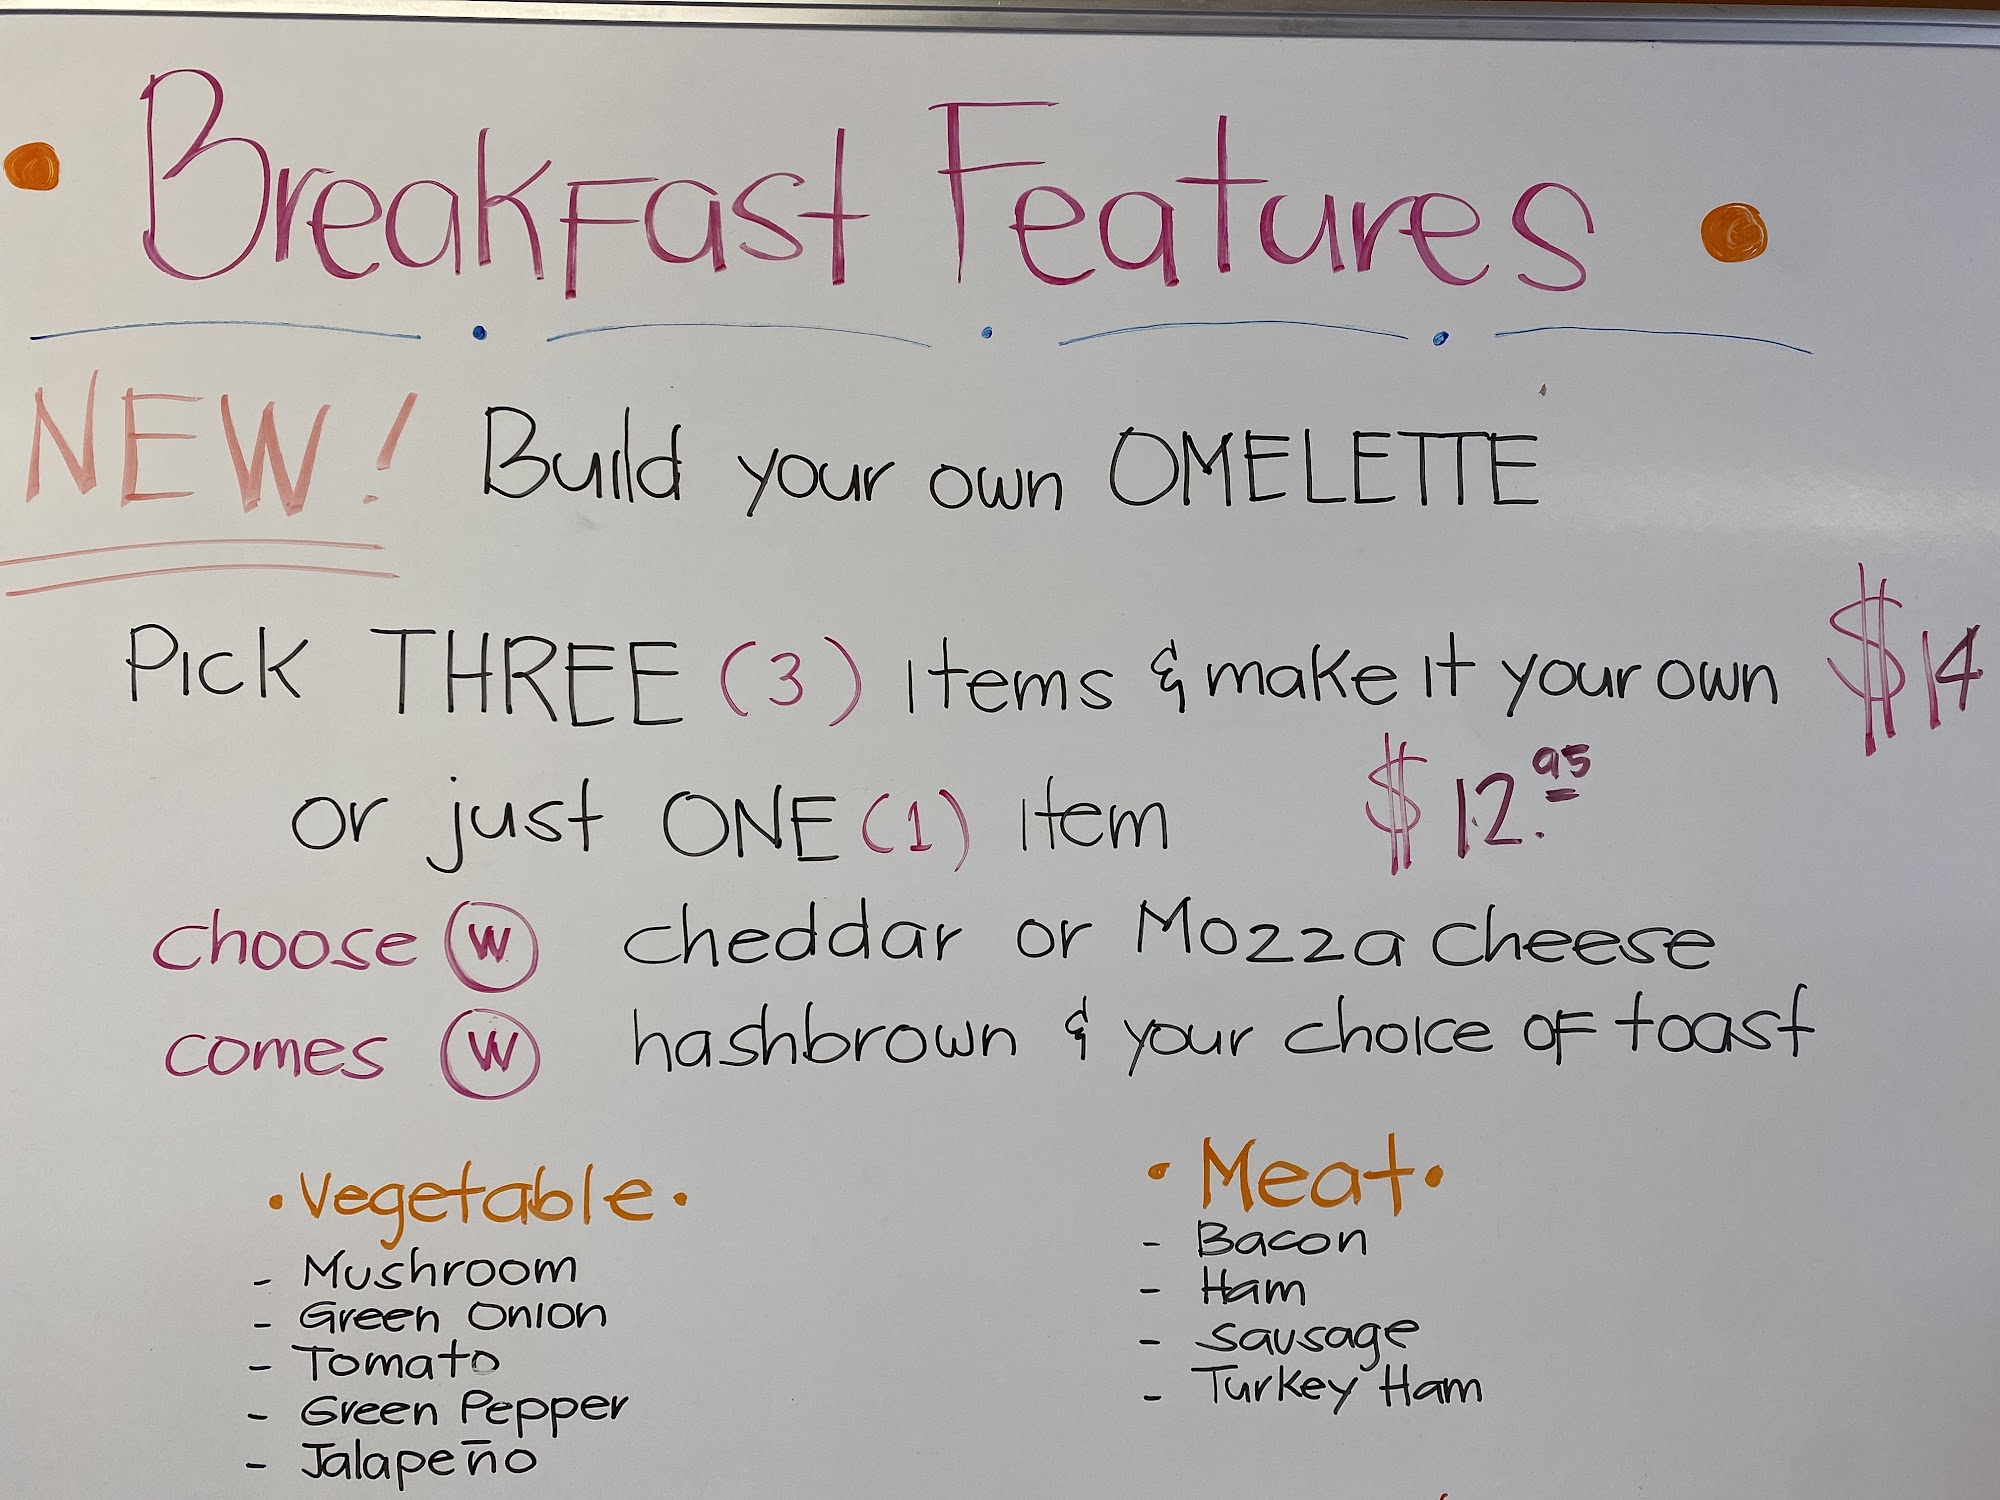 • Breakfast Features •
NEW! Build your own OMELETTE
Pick THREE (3) items & make it your own $14
or just ONE (1) item $12.95
choose W cheddar or Mozza cheese
comes W hashbrown & your choice of toast
• Vegetable •
- Mushroom
- Green Onion
- Tomato
- Green Pepper
- Jalapeño
• Meat •
- Bacon
- Ham
- Sausage
- Turkey Ham